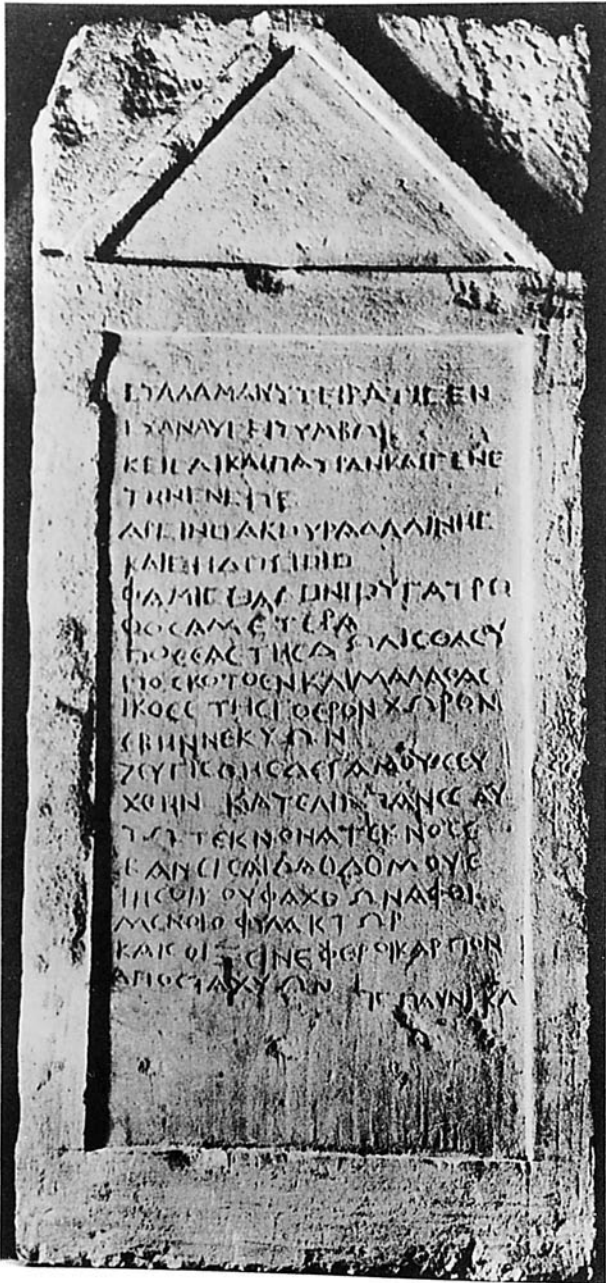 ϹΤΑΛΑΜΑΝΥΤΕΙΡΑΤΙϹΕΝ
ΚΥΑΝΑΥΓΕΙΤΥΜΒΩΙ
ΚΕΙϹΑΙΚΑΙΠΑΤΡΑΝΚΑΙΓΕΝΕ
ΤΗΝΕΝΕΠΕ
ΑΡϹΙΝΟΑΚΟΥΡΑΔΑΛΙΝΗϹ
ΚΑΙΘΗΔΟϹΙΟΙΟ
ΦΑΜΙϹΘΑΔΟΝΙΟΥΓΑΤΡΟ
ΦΟϹΑΜΕΤΕΡΑ
ΠΟϹϹΑΕΤΗϹΔΩΛΙϹΘΑϹΥ
ΠΟϹΚΟΤΟΕΝΚΛΙΜΑΛΑΘΑϹ
ΙΚΟϹΕΤΗϹΓΟΕΡΟΝΧΩΡΟΝ
ΕΒΗΝΝΕΚΥΩΝ
ΖΕΥΓΙϹΘΗϹΔΕΓΑΜΟΥϹΖΕΥ
ΧΘΗΝ ΚΑΤΕΛΙΠΠΑΝΕϹΑΥ
ΤΩΤΕΚΝΟΝΑΤΕΚΝΟϹΕ
ΒΑΝΕΙϹΑΙΔΑΟΔΟΜΟΥϹ
ΙΗϹΟΙΚΟΥΦΑΧΘΩΝΑΦΘΙ
ΜΕΝΟΙΟΦΥΛΑΚΤΩΡ
ΚΑΙϹΟΙΞΕΙΝΕΦΕΡΟΙΚΑΡΠΟΝ
ΑΠΟϹΤΑΧΥΩΝ ΠΑΥΝΙ ΚΑ